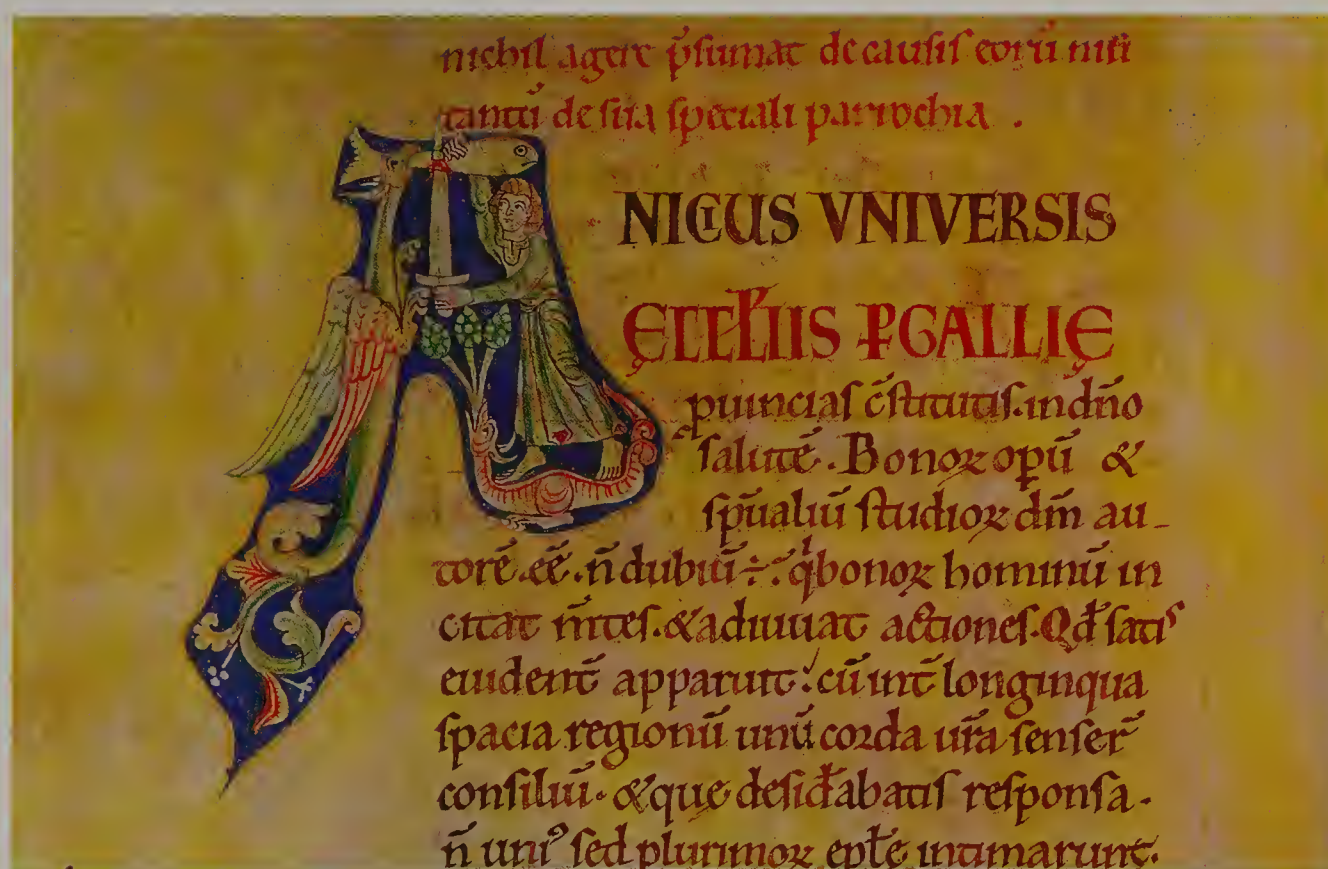 nichil agere p̄sumat de causis eorū nisi
tantū de sua speciali parrochia .
A NICIUS VNIVERSIS
ĘCCL̄IIS ꝑ GALLIĘ
ꝓuincias c̄stitutis. in dn̄o
salutē. Bonoꝝ opꝑū &
sp̄ualiū studioꝝ dm̄ au-
torē. eē. n̄ dubiū ÷. qͥ bonoꝝ hominū in
citat m̄tes. & adiuuat actiones. Qd̄ satiˢ
euident̄ apparuit. cū int̄ longinqua
spacia regionū unū corda ur̄a senser̄
consiliū. & que desid̄abatis responsa.
n̄ uniꝰ sed plurimoꝝ epl̄e intimarunt.